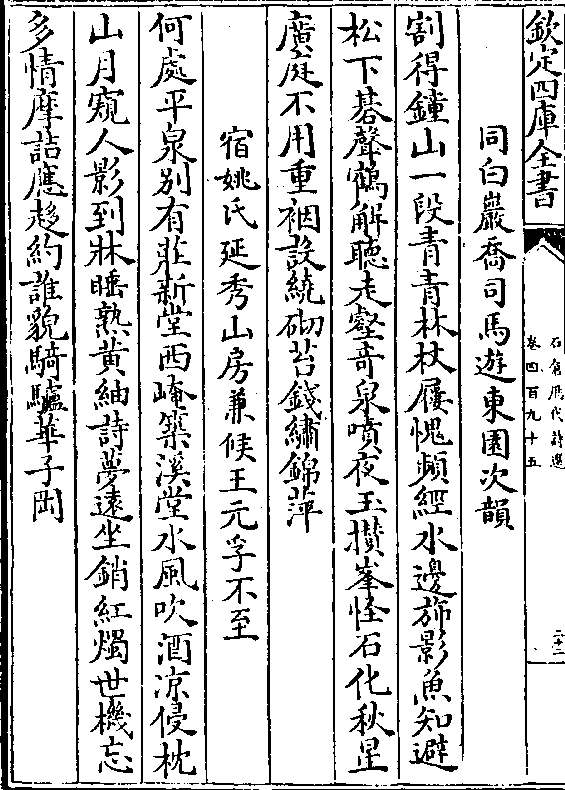 欽定四庫全書
石倉歷代詩選
卷四百九十五
二十二
同白巖喬司馬遊東園次韻
割得鐘山一段青青林杖屨愧頻經水邊旆影魚知避
松下碁聲鶴解聽走壑竒泉噴夜玉攅峯怪石化秋星
廣庭不用重裀設繞砌苔錢繡錦萍
宿姚氏延秀山房兼候王元孚不至
何處平泉别有莊新堂西崦築溪堂水風吹酒凉侵枕
山月窺人影到牀睡熟黄紬詩夢遠坐銷紅燭世機忘
多情摩詰應趍約誰貌騎驢華子岡